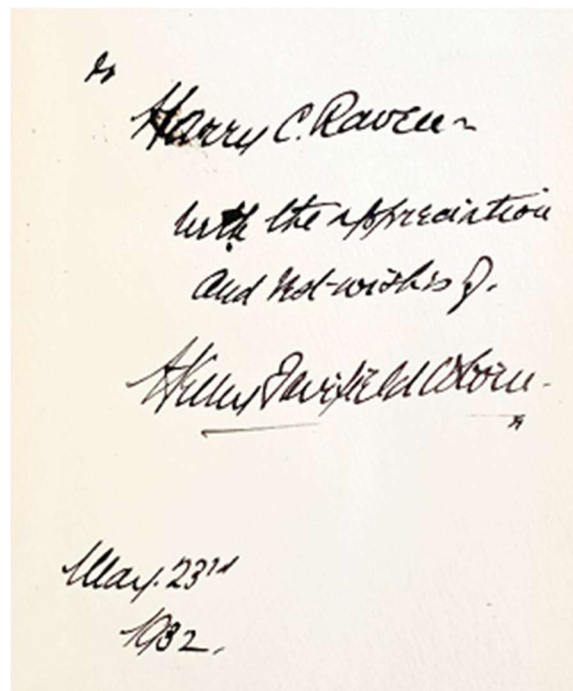 To
Harry C. Raven -
with the appreciation
and best-wishes of.
Henry Fairfield Osborn -
May. 23rd
1932.